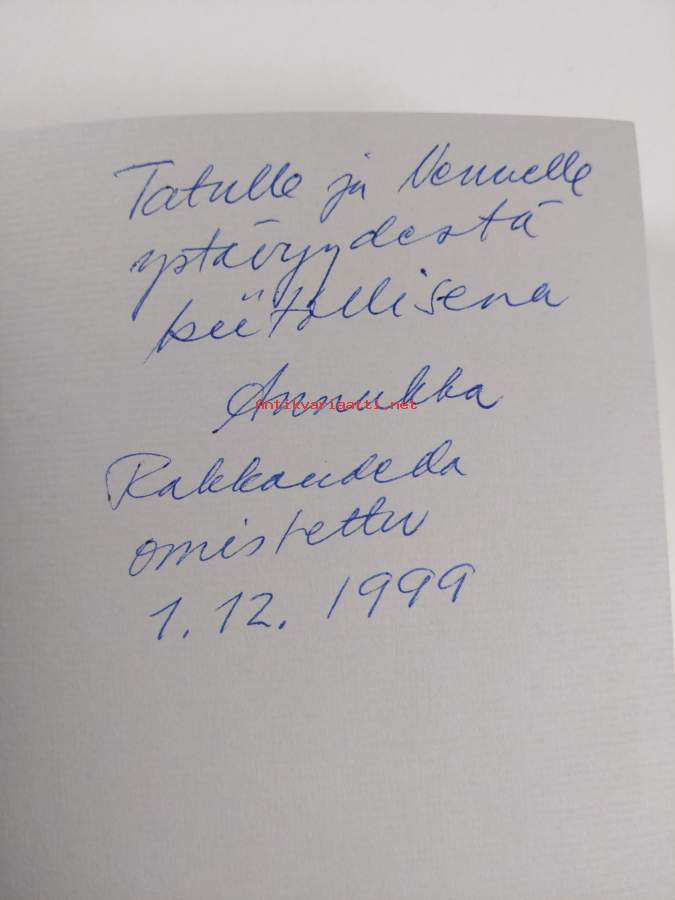 Tatulle ja Nennelle
ystävyydestä
kiitollisena
Annukka
Antikvariaatti.net
Rakkaudella
omistettu
1.12.1999